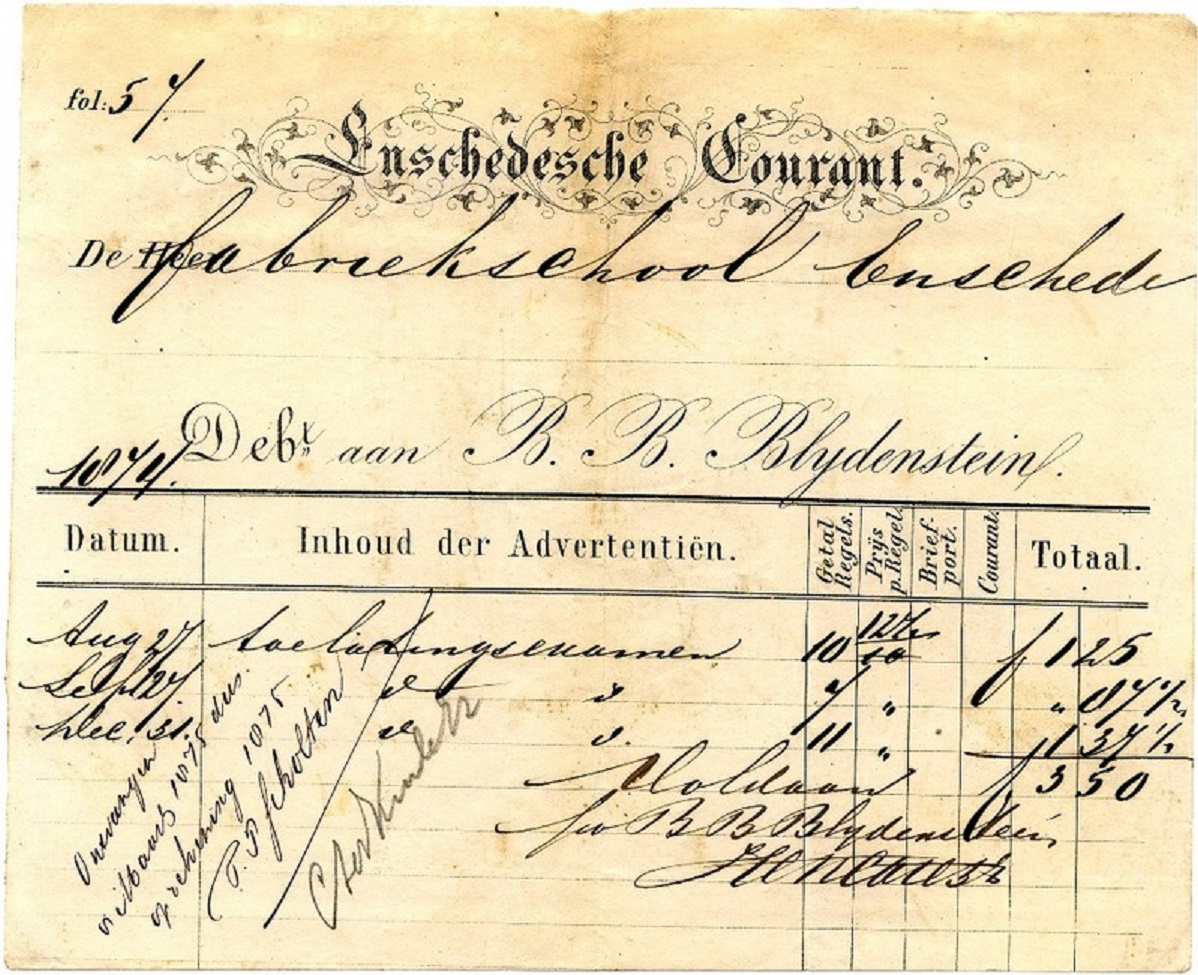 fol: 57.
Enschedesche Courant.
De Heer fabriekschool Enschede
Debt. aan B. B. Blydenstein.
1874.
Datum. Inhoud der Advertentiën. Getal Regels. Prijs p. Regel. Brief port. Courant. Totaal.
Aug 27 toelatingsexamen 10 12½ 10 f 1 25
Sept 27 d d 7 " " 87½
Dec. 31. d d. 11 " 1 37½
Voldaan f 3 50
pr B B Blydenstein
Ontvangen
Maart 1875 dus
op rekening 1875
Scholten